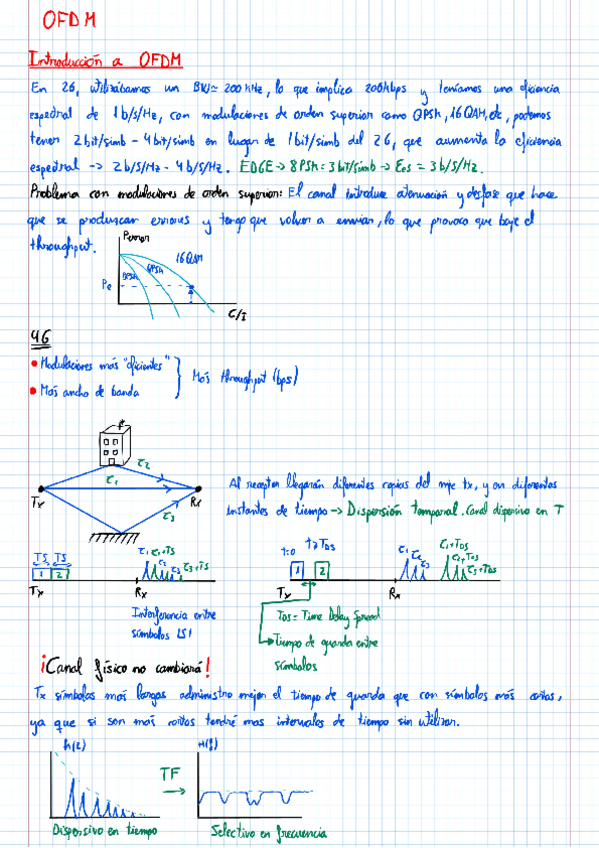 OFDM
Introducción a OFDM
En 2G, utilizábamos un BW≈ 200 KHz, lo que implica 200kbps y teníamos una eficiencia
espectral de 1b/s/Hz, con modulaciones de orden superior como QPSK, 16QAM, etc, podemos
tener 2bit/simb - 4bit/simb en lugar de 1bit/simb del 2G, que aumenta la eficiencia
espectral -> 2b/s/Hz - 4b/s/Hz. EDGE → 8PSK = 3bit/simb → Ees = 3b/s/Hz.
Problema con modulaciones de orden superior: El canal introduce atenuación y desfase que hace
que se produzcan errores y tengo que volver a enviar, lo que provoca que baje el
throughput.
Perror
16QAM
QPSK
BPSK
Pe
C/I
4G
• Modulaciones más "eficientes"
• Más ancho de banda
Más throughput (bps)
τ2
τ1
Tx
Rx
τ3
Al receptor llegarán diferentes copias del mje tx, y en diferentes
instantes de tiempo → Dispersión temporal. Canal dispersivo en T
TS TS
1 2
τ1 τ1+TS
τ2 τ3 τ3+TS
Tx
Rx
Interferencia entre
símbolos ISI
t=0
t≥TDS
1 2
τ1
τ2
τ3
τ1+TDS
τ2+TDS
τ3+TDS
Tx
Rx
TDS = Time Delay Spread
Tiempo de guarda entre
símbolos
¡Canal físico no cambiará!
Tx símbolos más largos administro mejor el tiempo de guarda que con símbolos más cortos,
ya que si son más cortos tendré mas intervalos de tiempo sin utilizar.
h(t)
TF
H(f)
Dispersivo en tiempo
Selectivo en frecuencia